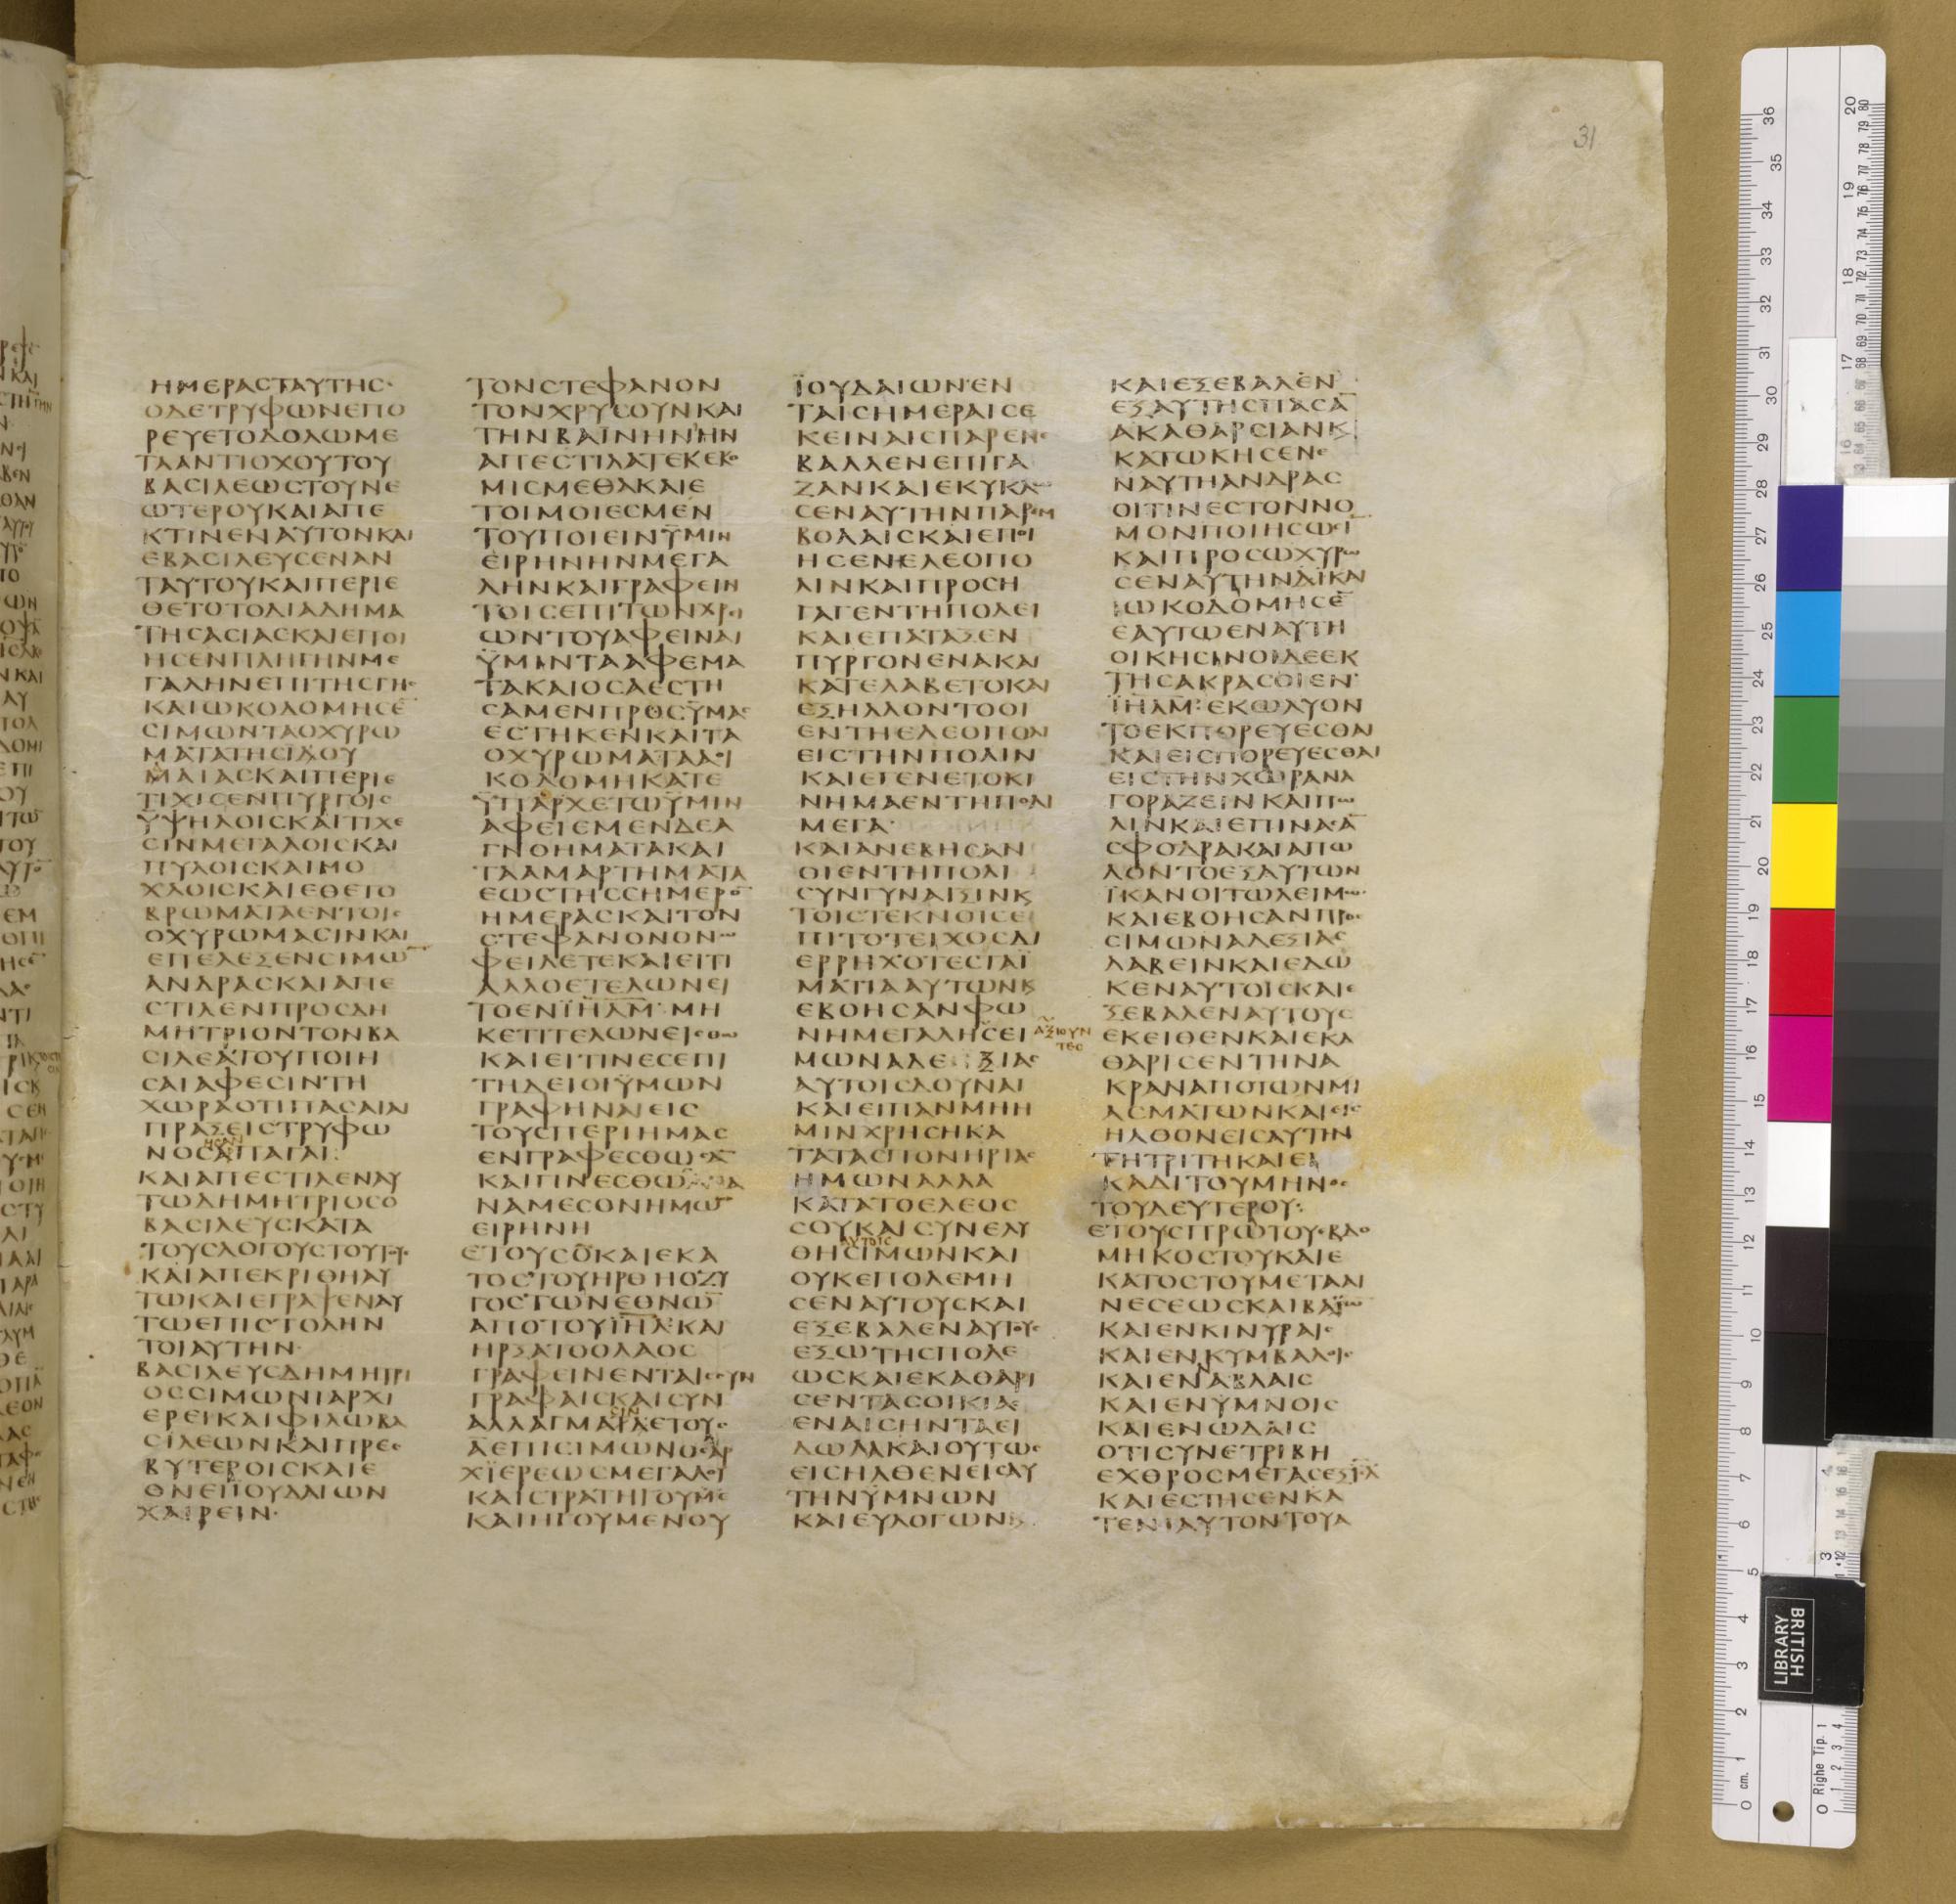 31
ΗΜΕΡΑϹΤΑΥΤΗϹ·
ΟΔΕΤΡΥΦΩΝΕΠΟ
ΡΕΥΕΤΟΔΟΛΩΜΕ
ΤΑΑΝΤΙΟΧΟΥΤΟΥ
ΒΑϹΙΛΕΩϹΤΟΥΝΕ
ΩΤΕΡΟΥΚΑΙΑΠΕ
ΚΤΙΝΕΝΑΥΤΟΝΚΑΙ
ΕΒΑϹΙΛΕΥϹΕΝΑΝ
ΤΑΥΤΟΥΚΑΙΠΕΡΙΕ
ΘΕΤΟΤΟΔΙΑΔΗΜΑ
ΤΗϹΑϹΙΑϹΚΑΙΕΠΟΙ
ΗϹΕΝΠΛΗΓΗΝΜΕ
ΓΑΛΗΝΕΠΙΤΗϹΓΗϹ
ΚΑΙΩΚΟΔΟΜΗϹΕ̅
ϹΙΜΩΝΤΑΟΧΥΡΩ
ΜΑΤΑΤΗϹΙΔΟΥ
ΜΑΙΑϹΚΑΙΠΕΡΙΕ
ΤΙΧΙϹΕΝΠΥΡΓΟΙϹ
ΥΨΗΛΟΙϹΚΑΙΤΙΧΕ
ϹΙΝΜΕΓΑΛΟΙϹΚΑΙ
ΠΥΛΟΙϹΚΑΙΜΟ
ΧΛΟΙϹΚΑΙΕΘΕΤΟ
ΒΡΩΜΑΤΑΕΝΤΟΙϹ
ΟΧΥΡΩΜΑϹΙΝΚΑΙ
ΕΠΕΛΕΞΕΝϹΙΜΩ̅
ΑΝΔΡΑϹΚΑΙΑΠΕ
ϹΤΙΛΕΝΠΡΟϹΔΗ
ΜΗΤΡΙΟΝΤΟΝΒΑ
ϹΙΛΕΑΤΟΥΠΟΙΗ
ϹΑΙΑΦΕϹΙΝΤΗ
ΧΩΡΑΟΤΙΠΑϹΑΙΑΙ
ΠΡΑΞΕΙϹΤΡΥΦΩ
ΗϹΑΝ
ΝΟϹΑΠΑΓΑΙ:
ΚΑΙΑΠΕϹΤΙΛΕΝΑΥ
ΤΩΔΗΜΗΤΡΙΟϹΟ
ΒΑϹΙΛΕΥϹΚΑΤΑ
ΤΟΥϹΛΟΓΟΥϹΤΟΥΤ
ΚΑΙΑΠΕΚΡΙΘΗΑΥ
ΤΩΚΑΙΕΓΡΑΨΕΝΑΥ
ΤΩΕΠΙϹΤΟΛΗΝ
ΤΟΙΑΥΤΗΝ·
ΒΑϹΙΛΕΥϹΔΗΜΗΤΡΙ
ΟϹϹΙΜΩΝΙΑΡΧΙ
ΕΡΕΙΚΑΙΦΙΛΩΒΑ
ϹΙΛΕΩΝΚΑΙΠΡΕϹ
ΒΥΤΕΡΟΙϹΚΑΙΕ
ΘΝΕΙΙΟΥΔΑΙΩΝ
ΧΑΙΡΕΙΝ·
ΤΟΝϹΤΕΦΑΝΟΝ
ΤΟΝΧΡΥϹΟΥΝΚΑΙ
ΤΗΝΒΑΪΝΗΝΗΝ
ΑΠΕϹΤΙΛΑΤΕΚΕΚΟ
ΜΙϹΜΕΘΑΚΑΙΕ
ΤΟΙΜΟΙΕϹΜΕΝ
ΤΟΥΠΟΙΕΙΝΫΜΙΝ
ΕΙΡΗΝΗΝΜΕΓΑ
ΛΗΝΚΑΙΓΡΑΦΕΙΝ
ΤΟΙϹΕΠΙΤΩΝΧΡΙ
ΩΝΤΟΥΑΦΕΙΝΑΙ
ΫΜΙΝΤΑΑΦΕΜΑ
ΤΑΚΑΙΟϹΑΕϹΤΗ
ϹΑΜΕΝΠΡΟϹΥΜΑϹ
ΕϹΤΗΚΕΝΚΑΙΤΑ
ΟΧΥΡΩΜΑΤΑΑΟΙ
ΚΟΔΟΜΗΚΑΤΕ
ΫΠΑΡΧΕΤΩΫΜΙΝ
ΑΦΕΙΕΜΕΝΔΕΑ
ΓΝΟΗΜΑΤΑΚΑΙ
ΤΑΑΜΑΡΤΗΜΑΤΑ
ΕΩϹΤΗϹϹΗΜΕΡΟ̅
ΗΜΕΡΑϹΚΑΙΤΟΝ
ϹΤΕΦΑΝΟΝΟΝΩ
ΦΕΙΛΕΤΕΚΑΙΕΙΤΙ
ΑΛΛΟΕΤΕΛΩΝΕΙ
ΤΟΕΝΙ̅Η̅Λ̅Μ̅·ΜΗ
ΚΕΤΙΤΕΛΩΝΕΙϹΘΩ
ΚΑΙΕΙΤΙΝΕϹΕΠΙ
ΤΗΔΕΙΟΙΫΜΩΝ
ΓΡΑΦΗΝΑΙΕΙϹ
ΤΟΥϹΠΕΡΙΗΜΑϹ
ΕΝΓΡΑΦΕϹΘΩϹΑ̅
ΚΑΙΓΙΝΕϹΘΩ
ΝΑΜΕϹΟΝΗΜΩ̅
ΕΙΡΗΝΗ
ΕΤΟΥϹΟ̅ΚΑΙΕΚΑ
ΤΟϹΤΟΥΗΡΘΗΟΖΥ
ΓΟϹΤΩΝΕΘΝΩ̅
ΑΠΟΤΟΥΙ̅Η̅Λ̅·ΚΑΙ
ΗΡΞΑΤΟΟΛΑΟϹ
ΓΡΑΦΕΙΝΕΝΤΑΙϹϹΥΝ
ΓΡΑΦΑΙϹΚΑΙϹΥΝ
ϹΙΝ
ΑΛΛΑΓΜΑΤΑΕΤΟΥϹ
ΑΕΠΙϹΙΜΩΝΟϹΑΡ
ΧΪΕΡΕΩϹΜΕΓΑΛΟΥ
ΚΑΙϹΤΡΑΤΗΓΟΥΜΕ
ΚΑΙΗΓΟΥΜΕΝΟΥ
ΪΟΥΔΑΙΩΝΕΝ
ΤΑΙϹΗΜΕΡΑΙϹΕ
ΚΕΙΝΑΙϹΠΑΡΕΝΕ
ΒΑΛΛΕΝΕΠΙΓΑ
ΖΑΝΚΑΙΕΚΥΚΛΩ
ϹΕΝΑΥΤΗΝΠΑΡΕΜ
ΒΟΛΑΙϹΚΑΙΕΠΟΙ
ΗϹΕΝΕΛΕΟΠΟ
ΛΙΝΚΑΙΠΡΟϹΗ
ΓΑΓΕΝΤΗΠΟΛΕΙ
ΚΑΙΕΠΑΤΑΞΕΝ
ΠΥΡΓΟΝΕΝΑΚΑΙ
ΚΑΤΕΛΑΒΕΤΟΚΑΙ
ΕΞΗΛΛΟΝΤΟΟΙ
ΕΝΤΗΕΛΕΟΠΟΛΙ
ΕΙϹΤΗΝΠΟΛΙΝ
ΚΑΙΕΓΕΝΕΤΟΚΙ
ΝΗΜΑΕΝΤΗΠΟΛΙ
ΜΕΓΑ·
ΚΑΙΑΝΕΒΗϹΑΝ
ΟΙΕΝΤΗΠΟΛΙ
ϹΥΝΓΥΝΑΙΞΙΝΚ
ΤΟΙϹΤΕΚΝΟΙϹΕ
ΠΙΤΟΤΕΙΧΟϹΔΙ
ΕΡΡΗΧΟΤΕϹΤΑΪ
ΜΑΤΙΑΑΥΤΩΝΚ
ΕΒΟΗϹΑΝΦΩ
ΝΗΜΕΓΑΛΗϹΕΙ
ΑΞΙΟΥΝ
ΤΕϹ
ΜΩΝΑΔΕΞΙΑϹ
ΑΥΤΟΙϹΔΟΥΝΑΙ
ΚΑΙΕΙΠΑΝΜΗΗ
ΜΙΝΧΡΗϹΗΚΑ
ΤΑΤΑϹΠΟΝΗΡΙΑϹ
ΗΜΩΝΑΛΛΑ
ΚΑΤΑΤΟΕΛΕΟϹ
ϹΟΥΚΑΙϹΥΝΕΛΥ
ΑΥΤΟΙϹ
ΘΗϹΙΜΩΝΚΑΙ
ΟΥΚΕΠΟΛΕΜΗ
ϹΕΝΑΥΤΟΥϹΚΑΙ
ΕΞΕΒΑΛΕΝΑΥΤΟΥϹ
ΕΞΩΤΗϹΠΟΛΕ
ΩϹΚΑΙΕΚΑΘΑΡΙ
ϹΕΝΤΑϹΟΙΚΙΑϹ
ΕΝΑΙϹΗΝΤΑΕΙ
ΔΩΛΑΚΑΙΟΥΤΩϹ
ΕΙϹΗΛΘΕΝΕΙϹΑΥ
ΤΗΝΫΜΝΩΝ
ΚΑΙΕΥΛΟΓΩΝ
ΚΑΙΕΞΕΒΑΛΕΝ
ΕΞΑΥΤΗϹΠΑϹΑ̅
ΑΚΑΘΑΡϹΙΑΝΚ
ΚΑΤΩΚΗϹΕΝΕ
ΝΑΥΤΗΑΝΔΡΑϹ
ΟΙΤΙΝΕϹΤΟΝΝΟ
ΜΟΝΠΟΙΗϹΩϹΙ̅
ΚΑΙΠΡΟϹΩΧΥΡΩ
ϹΕΝΑΥΤΗΝΚΑΙ
ΩΚΟΔΟΜΗϹΕ̅
ΕΑΥΤΩΕΝΑΥΤΗ
ΟΙΚΗϹΙΝΟΙΔΕΕΚ
ΤΗϹΑΚΡΑϹΟΙΕΝ
Ι̅Η̅Λ̅Μ̅:ΕΚΩΛΥΟΝ
ΤΟΕΚΠΟΡΕΥΕϹΘΑΙ
ΚΑΙΕΙϹΠΟΡΕΥΕϹΘΑΙ
ΕΙϹΤΗΝΧΩΡΑΝΑ
ΓΟΡΑΖΕΙΝΚΑΙΠΩ
ΛΙΝΚΑΙΕΠΙΝΑϹΑ̅
ϹΦΟΔΡΑΚΑΙΑΠΩ
ΛΟΝΤΟΕΞΑΥΤΩΝ
ΪΚΑΝΟΙΤΩΛΕΙΜΩ
ΚΑΙΕΒΟΗϹΑΝΠΡΟϹ
ϹΙΜΩΝΑΔΕΞΙΑϹ
ΛΑΒΕΙΝΚΑΙΕΔΩ
ΚΕΝΑΥΤΟΙϹΚΑΙΕ
ΞΕΒΑΛΕΝΑΥΤΟΥϹ
ΕΚΕΙΘΕΝΚΑΙΕΚΑ
ΘΑΡΙϹΕΝΤΗΝΑ
ΚΡΑΝΑΠΟΤΩΝΜΙ
ΑϹΜΑΤΩΝΚΑΙΕΙϹ
ΗΛΘΟΝΕΙϹΑΥΤΗΝ
ΤΗΤΡΙΤΗΚΑΙΕΙ
ΚΑΔΙΤΟΥΜΗΝΟϹ
ΤΟΥΔΕΥΤΕΡΟΥ:
ΕΤΟΥϹΠΡΩΤΟΥϹΒΔΟ
ΜΗΚΟϹΤΟΥΚΑΙΕ
ΚΑΤΟϹΤΟΥΜΕΤΑΑΙ
ΝΕϹΕΩϹΚΑΙΒΑΪΩ
ΚΑΙΕΝΚΙΝΥΡΑΙϹ
ΚΑΙΕΝΚΥΜΒΑΛΟΙϹ
ΚΑΙΕΝΑΒΛΑΙϹ
ΚΑΙΕΝΫΜΝΟΙϹ
ΚΑΙΕΝΩΔΑΙϹ
ΟΤΙϹΥΝΕΤΡΙΒΗ
ΕΧΘΡΟϹΜΕΓΑϹΕΞΙΛ
ΚΑΙΕϹΤΗϹΕΝΚΑ
ΤΕΝΙΑΥΤΟΝΤΟΥΑ
BRITISH
LIBRARY
0 cm. 1 2 3 4 5 6 7 8 9 10 11 12 13 14 15 16 17 18 19 20 21 22 23 24 25 26 27 28 29 30 31 32 33 34 35 36
0 Righe Tip. 1